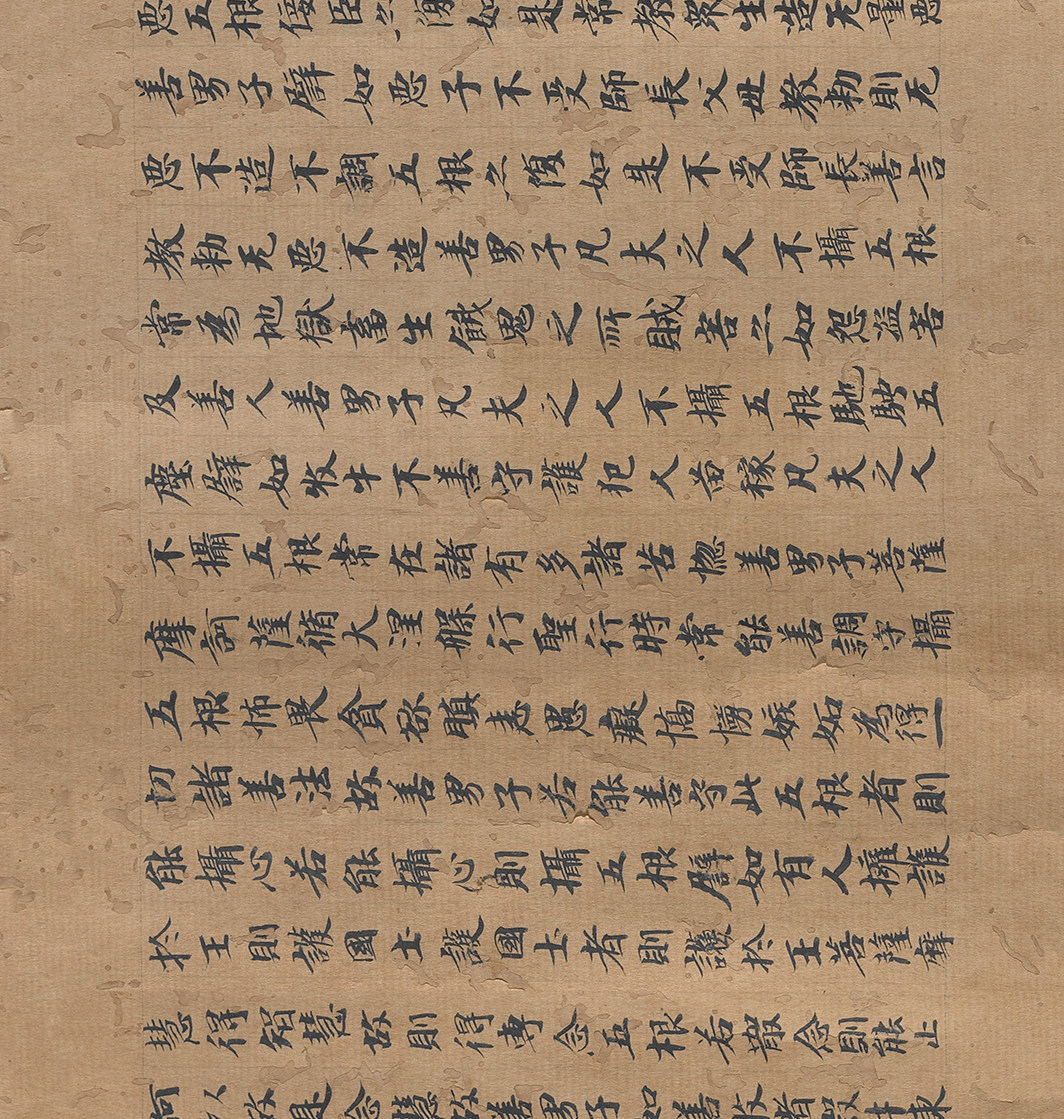 惡五根佞臣亦復如是常教衆生造无量惡
善男子譬如惡子不受師長父母教勑則无
惡不造不調五根亦復如是不受師長善言
教勑无惡不造善男子凡夫之人不攝五根
常為地獄畜生餓鬼之所賊害亦如怨盜害
及善人善男子凡夫之人不攝五根馳騁五
塵譬如牧牛不善守護犯人苗稼凡夫之人
不攝五根常在諸有多諸苦惱善男子菩薩
摩訶薩脩大涅槃行聖行時常能善調守攝
五根怖畏貪欲瞋恚愚癡憍慢嫉妬為得一
切諸善法故善男子若能善守此五根者則
能攝心若能攝心則攝五根譬如有人擁護
於王則護國土護國土者則護於王菩薩摩
慧得智慧故則得專念五根若散念則能止
何以故是念慧故善男子如善牧者設牛東